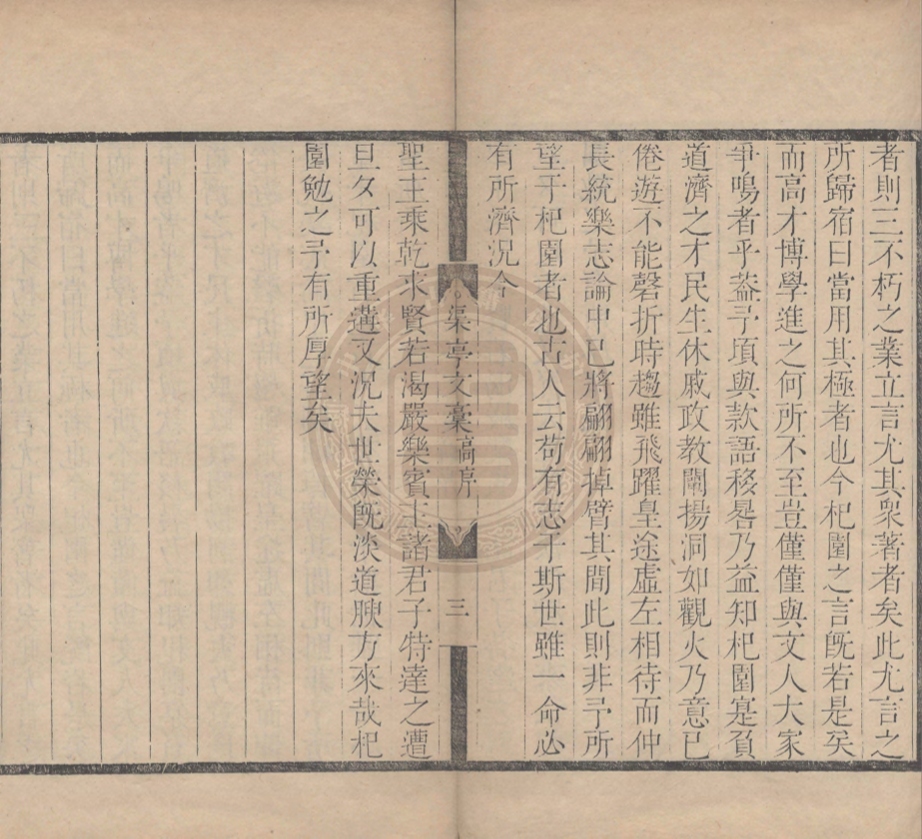 者則三不朽之業立言尤其衆著者矣此尤言之
所歸宿曰當用其極者也今杞園之言旣若是矣
而高才博學進之何所不至豈僅僅與文人大家
爭鳴者乎葢予頃與款語移晷乃益知杞園寔負
道濟之才民生休戚政教闡揚洞如觀火乃意已
倦遊不能磬折時趨雖飛躍皇途虛左相待而仲
長統樂志論中已將翩翩掉臂其間此則非予所
望于杞園者也古人云苟有志于斯世雖一命必
有所濟況今
渠亭文稾 高序 三
聖主乘乾求賢若渴嚴樂賓王諸君子特達之遭
旦夕可以重遘又況夫世榮旣淡道腴方來哉杞
園勉之予有所厚望矣